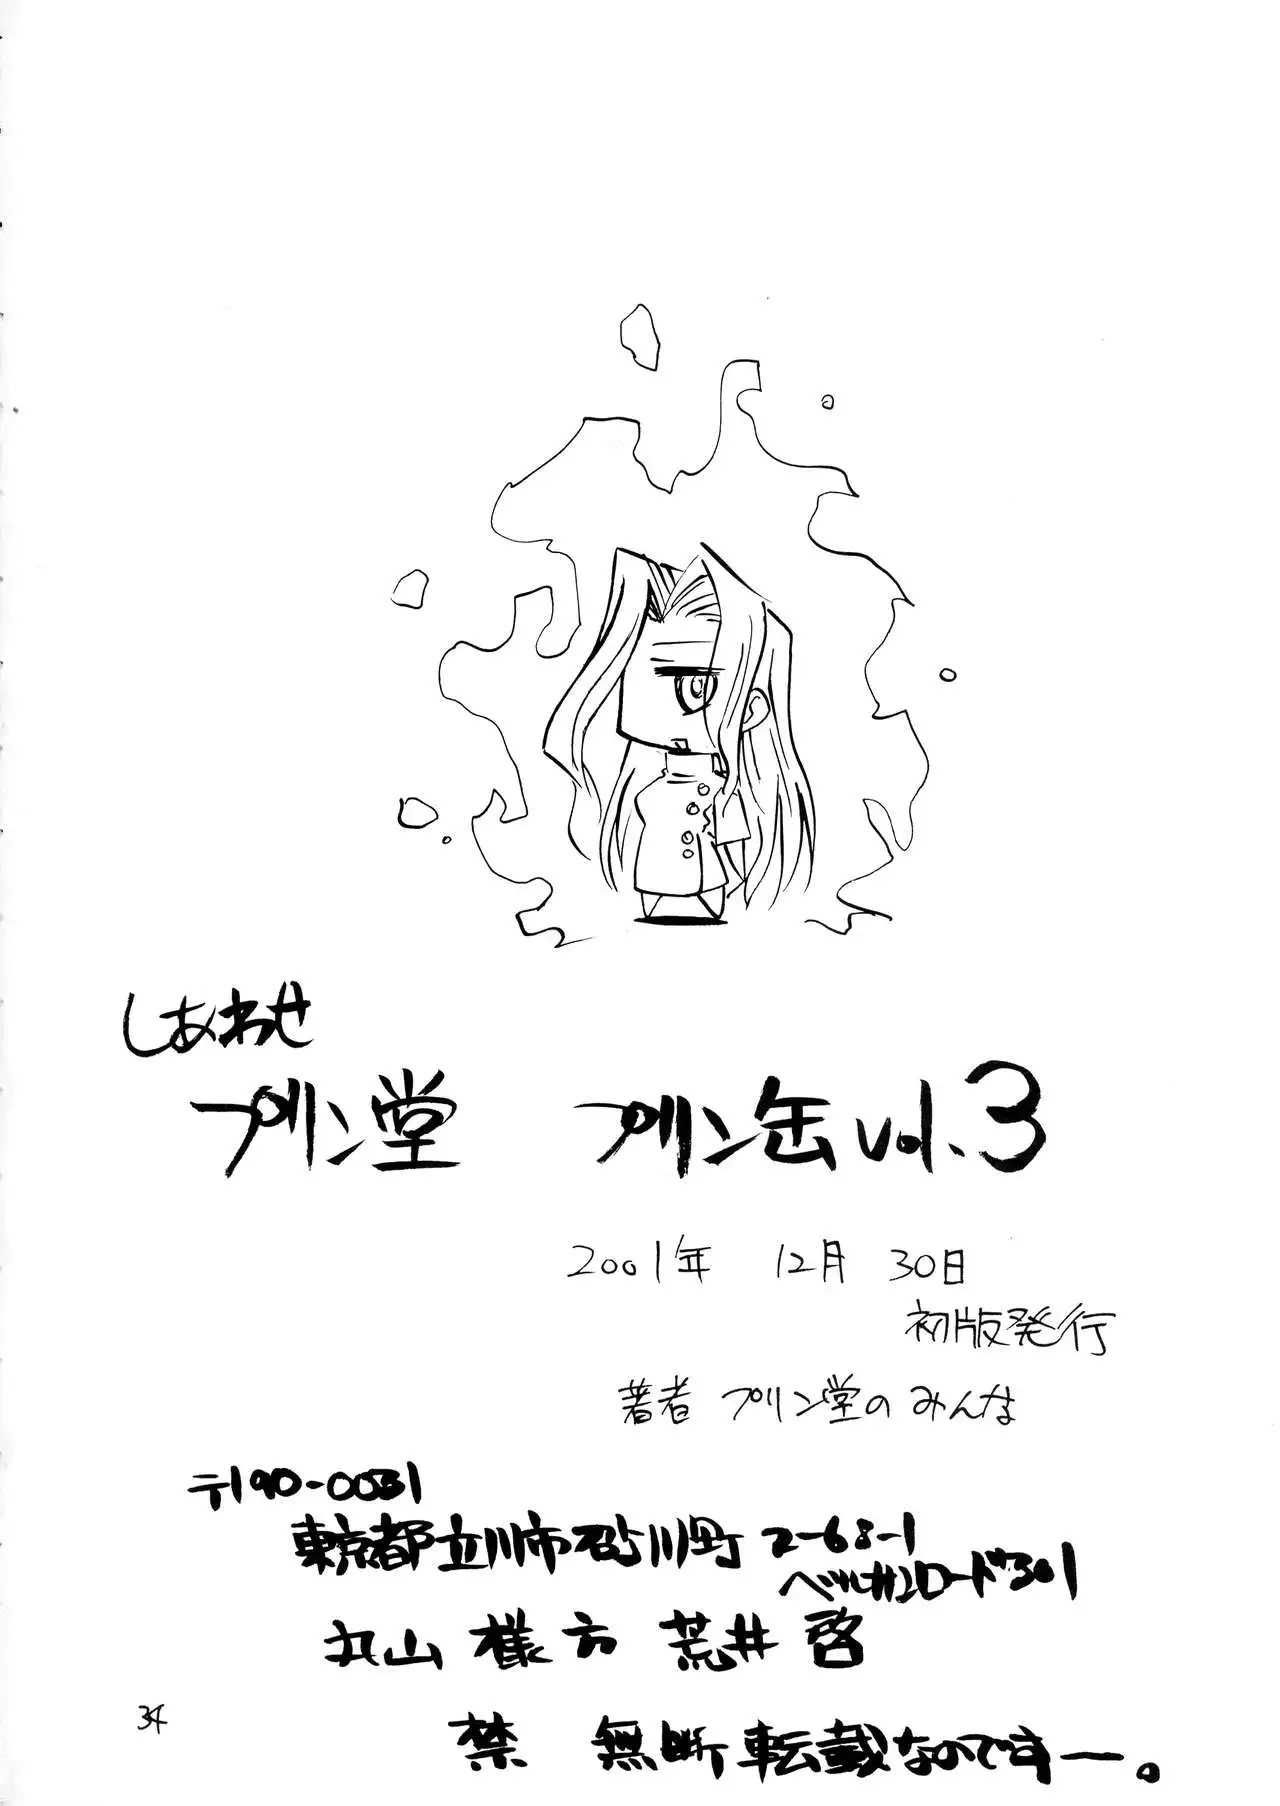 しあわせ
プリン堂 プリン缶 vol.3
2001年 12月 30日
初版発行
著者 プリン堂の みんな
〒190-0031
東京都立川市砂川町 2-68-1
ベルサンロード301
丸山 様方 荒井 啓
34
禁 無断転載なのですー。